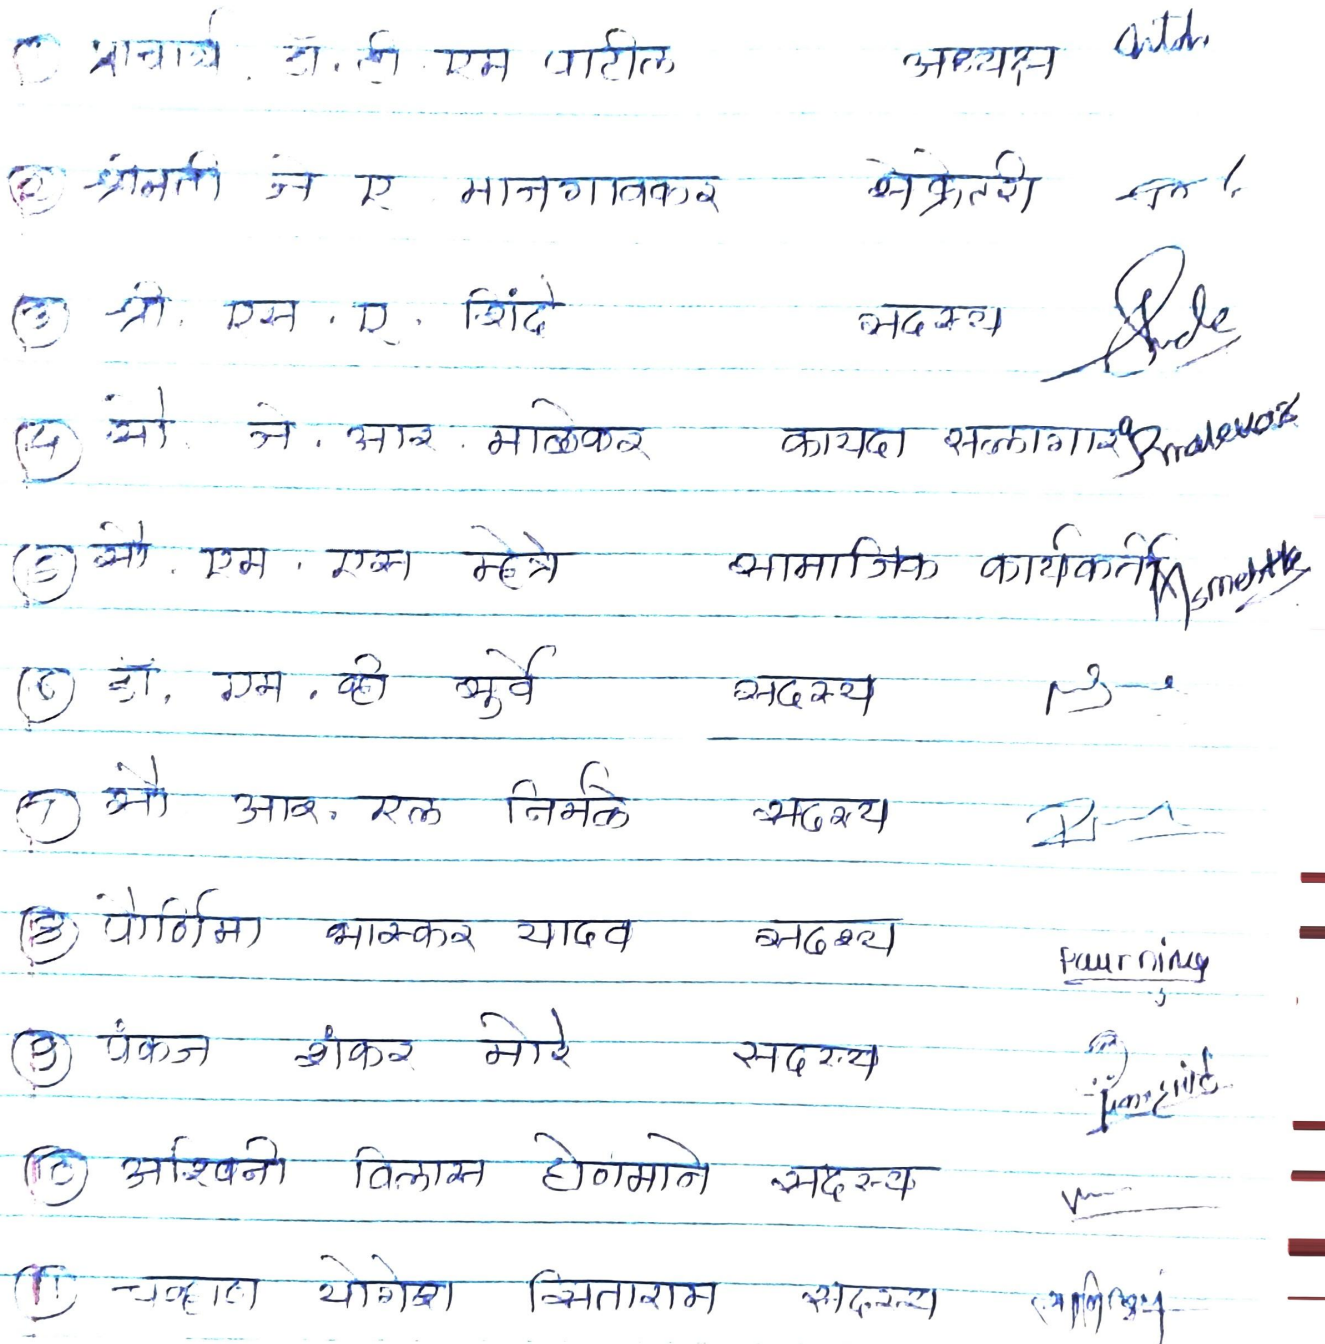 ① प्राचार्य. डॉ. डी. एम पाटील अध्यक्ष
② श्रीमती जे ए माजगावकर सेक्रेटरी
③ श्री. एस. ए. शिंदे सदस्य
④ सौ. जे. आर. माळेकर कायदा सल्लागार
⑤ सौ. एम. एस म्हेत्रे सामाजिक कार्यकर्ते
⑥ डॉ. एम. व्ही सुर्वे सदस्य
⑦ सौ आर. एल निर्मळे सदस्य
⑧ पौर्णिमा भास्कर यादव सदस्य
⑨ पंकज शंकर मोरे सदस्य
⑩ अश्विनी विलास हेगमाने सदस्य
⑪ चव्हाण योगेश सिताराम सदस्य